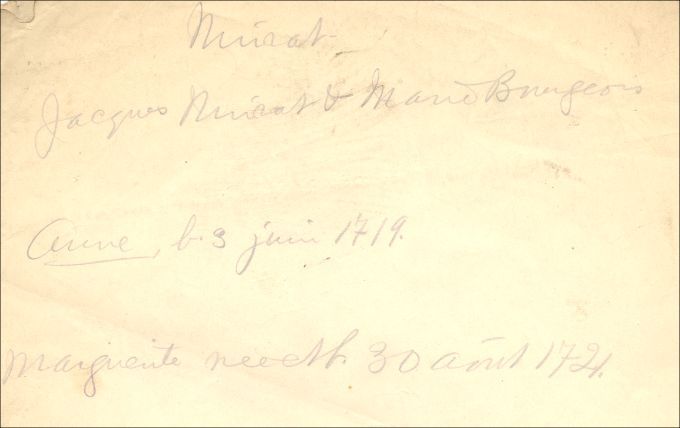 Mirat
Jacques Mirat & Marie Bourgeois
Anne, b. 3 juin 1719.
Marguerite nee et b. 30 août 1721.